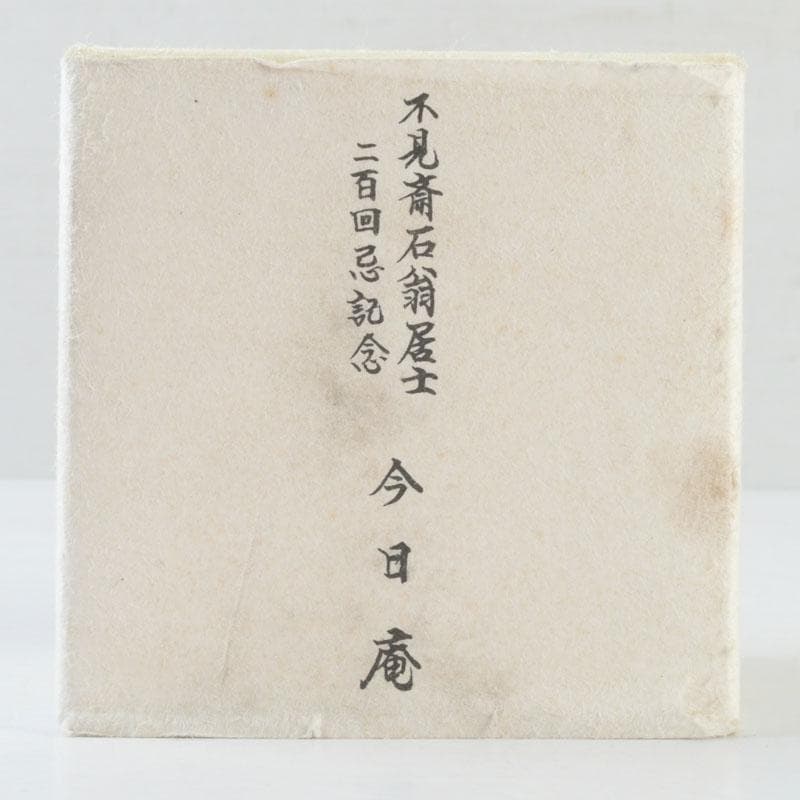 不見斎石翁居士
二百回忌記念
今日庵